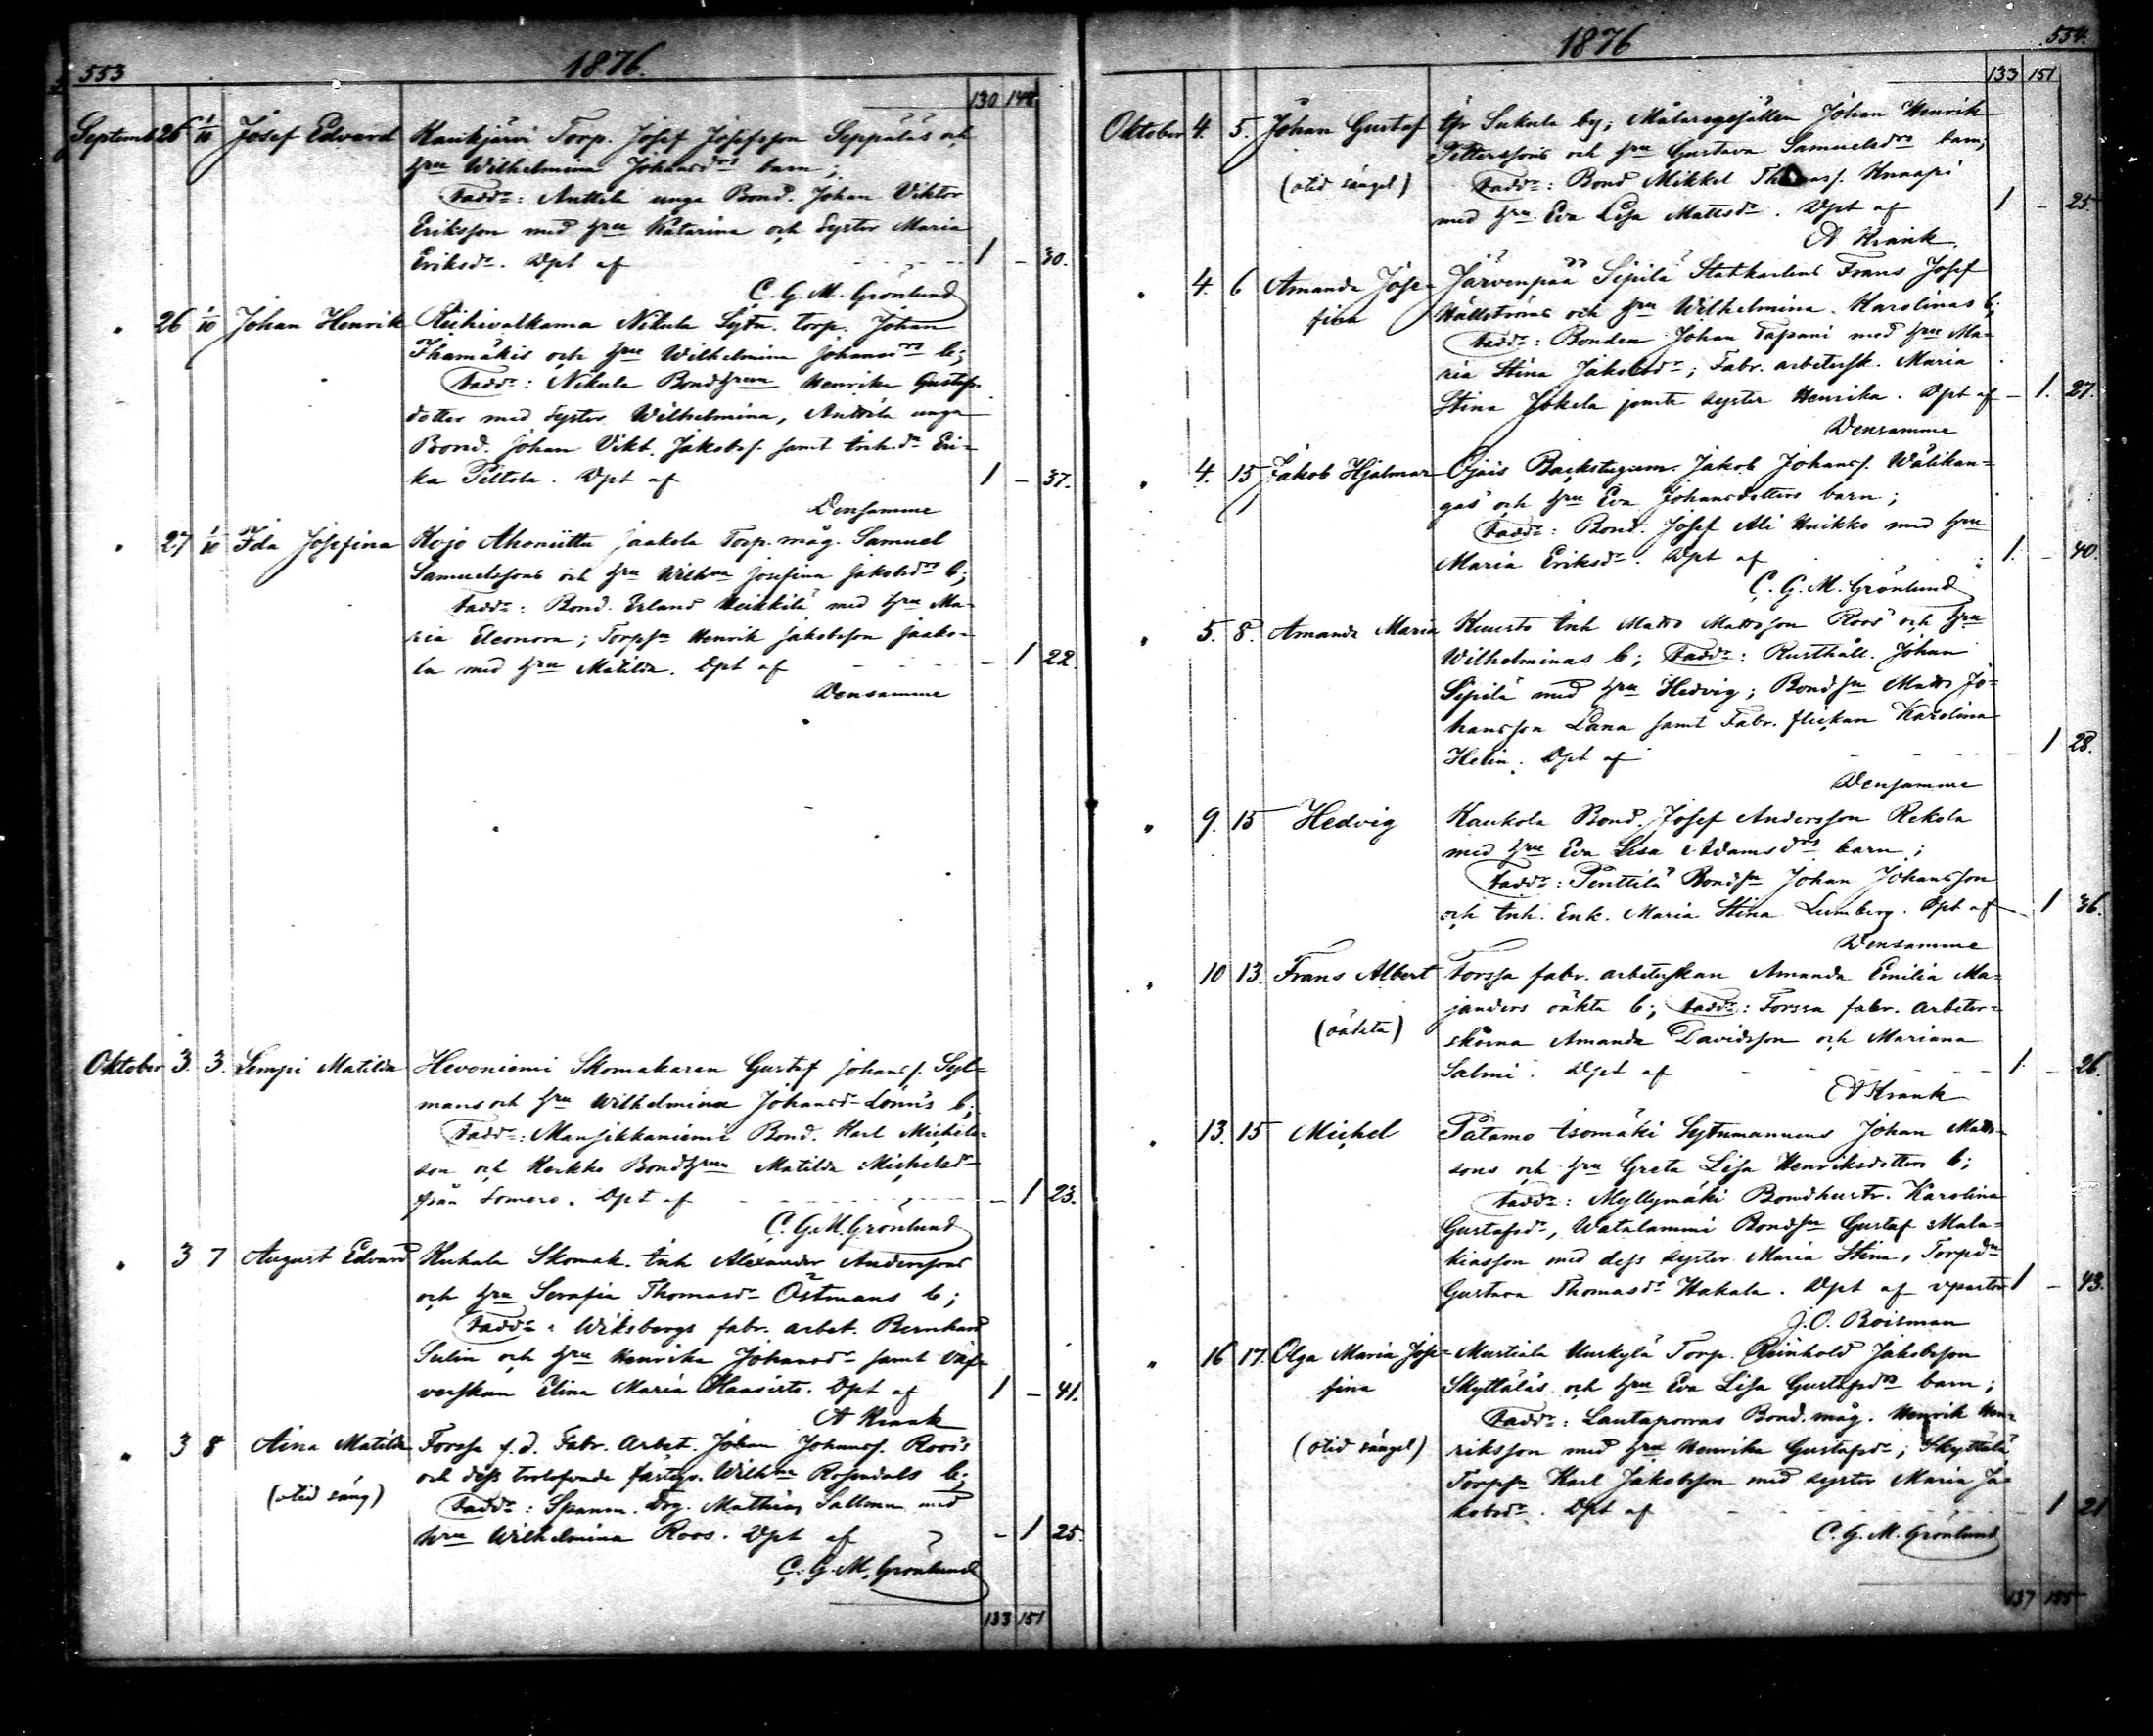 553
1876.
130 148
Septemb 26 1/10 Josef Edvard Kaukjärvi Torp. Josef Josefsson Seppäläs och
hru Wilhelmina Johansdrs barn;
Fadd: Anttila unga Bond. Johan Viktor
Eriksson med hru Katarina och Syster Maria
Eriksdr. Dpt af 1 - 30.
C. G. M. Grönlund
" 26 1/10 Johan Henrik Riihivalkama Nikula Sytn. torp. Johan
Ihamäkis och hru Wilhelmina Johansdrs b;
Fadd: Nikula Bondhrun Henrika Gustafs
dotter med Syster Wilhelmina, Anttila unga
Bond. Johan Vikt. Jakobss. samt Inh.dr Eri-
ka Piltola. Dpt af 1 - 37.
Densamme
" 27 1/10 Ida Josefina Kojo Ahoniittu Jaakola Torp. måg. Samuel
Samuelssons och hru Wilhna Josefina Jakobsdrs b;
Fadd: Bond. Erland Heikkilä med hru Ma-
ria Eleonora; Torpsn Henrik Jakobsson Jaako-
la med hru Matilda. Dpt af - 1 22
Densamme
Oktober 3. 3. Lempi Matilda Hevoniemi Skomakaren Gustaf Johanss. Syl-
mans och hru Wilhelmina Johansdr Lönns b;
Fadd: Mansikkaniemi Bond. Karl Michels-
son och Kerkko Bondhrun Matilda Michelsdr
från Somero. Dpt af - 1 23.
C. G. M. Grönlund
" 3 7 August Edvard Kuhala Skomak. Inh Alexander Anderssons
och hru Serafia Thomasdr Östmans b;
Fadd: Wiksbergs fabr. arbet. Bernhard
Sulin och hru Henrika Johansdr samt Väf-
verskan Elina Maria Haasirts. Dpt af 1 - 41.
A Krank
" 3 8 Aina Matilda Forssa f.d. Fabr. Arbet. Johan Johanss. Roos's
och dess trolofvade fästeq. Wilhna Rosendals b;
(otid säng) Fadd: Spannm. Drg. Mathias Sallman med
hru Wilhelmina Roos. Dpt af - 1 25.
C. G. M. Grönlund
133 151
1876
554.
133 151
Oktober 4. 5. Johan Gustaf fr Sukula by; Målaregesällen Johan Henrik
Petterssons och hru Gustava Samuelsdrs barn;
(otid sängel) Fadd: Bond Mikkel Thomass. Knaapi
med hru Eva Lisa Mattsdr. Dpt af 1 - 25.
A Krank
" 4. 6 Amanda Jose- Järvenpää Sipilä Statkarlens Frans Josef
fina Hällströms och hru Wilhelmina Karolinas b;
Fadd: Bonden Johan Tapani med hru Ma-
ria Stina Jakobsdr; Fabr. arbetersk. Maria
Stina Jokela jemte syster Henrika. Dpt af - 1. 27.
Densamme
" 4. 15 Jakob Hjalmar Ojais Backstugum. Jakob Johanss. Wälikan-
gas och hru Eva Johansdotters barn;
Fadd: Bond. Josef Ali Huikko med hru
Maria Eriksdr. Dpt af 1. - 40.
C. G. M. Grönlund
" 5. 8. Amanda Maria Kuusto Inh Matts Mattsson Roos' och hru
Wilhelminas b; Fadd: Rusthåll. Johan
Sipilä med hru Hedvig; Bondsn Matts Jo-
hansson Lana samt Fabr. flickan Karolina
Helin. Dpt af - 1 28.
Densamme
" 9. 15 Hedvig Kaukola Bond. Josef Andersson Rekola
med hru Eva Lisa Adamsdrs barn;
Fadd: Penttilä Bondsn Johan Johansson
och Inh. Enk. Maria Stina Lumberg. Dpt af 1 36.
Densamme
" 10 13. Frans Albert Forssa fabr. arbeterskan Amanda Emilia Ma-
janders oäkta b; Fadd: Forssa fabr. arbeter-
(oäkta) skorna Amanda Davidsson och Mariana
Salmi. Dpt af 1. - 26.
A Krank
" 13. 15 Michel Patamo Isomäki Sytnmannens Johan Matts-
sons och hru Greta Lisa Henriksdotters b;
Fadd: Myllymäki Bondhustr. Karolina
Gustafsdr, Watalammi Bondsn Gustaf Mala-
kiasson med dess syster Maria Stina, Torpdr
Gustava Thomasdr Hakala. Dpt af vpastor 1 - 43.
J. O. Roisman
" 16 17. Olga Maria Jose- Mustiala Uuskylä Torp. Reinhold Jakobsson
fina Skyttäläs och hru Eva Lisa Gustafsdrs barn;
Fadd: Lautaporras Bond. måg. Henrik Hen-
(otid sängel) riksson med hru Henrika Gustafsdr; Skyttälä
Torpsn Karl Jakobsson med syster Maria Ja-
kobsdr. Dpt af 1 21
C. G. M. Grönlund
137 155